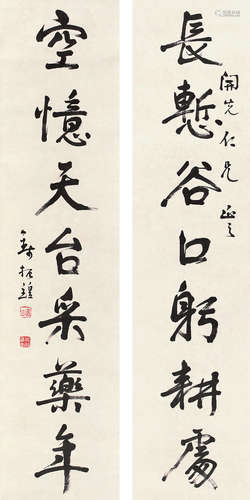 長慙谷口躬耕處
開先仁兄正之
空憶天台采藥年
錢振鍠